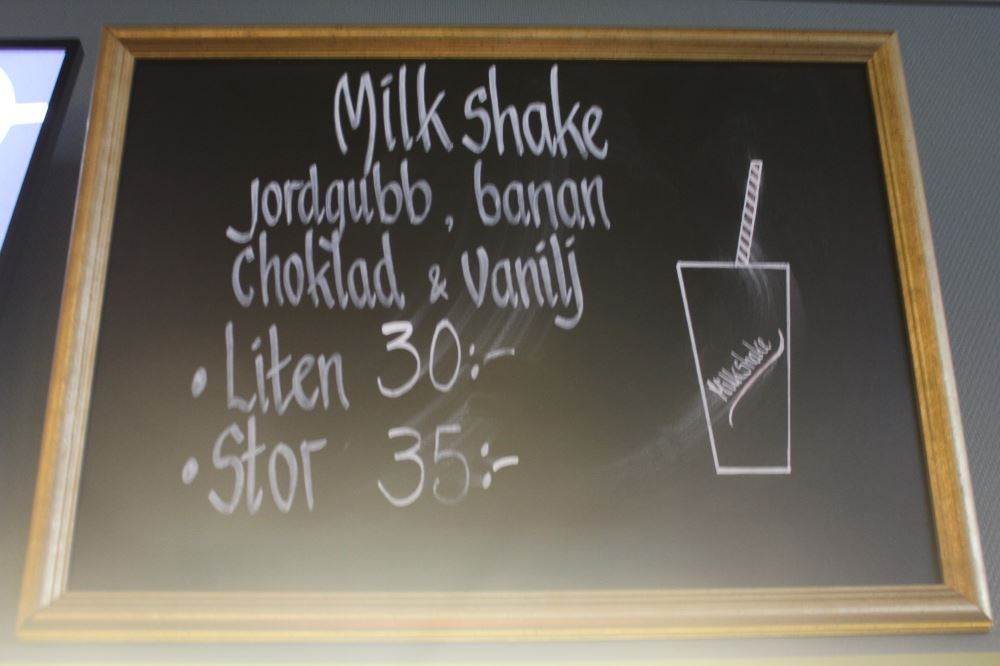 Milkshake
jordgubb, banan
choklad & Vanilj
• Liten 30:-
• Stor 35:-
Milkshake